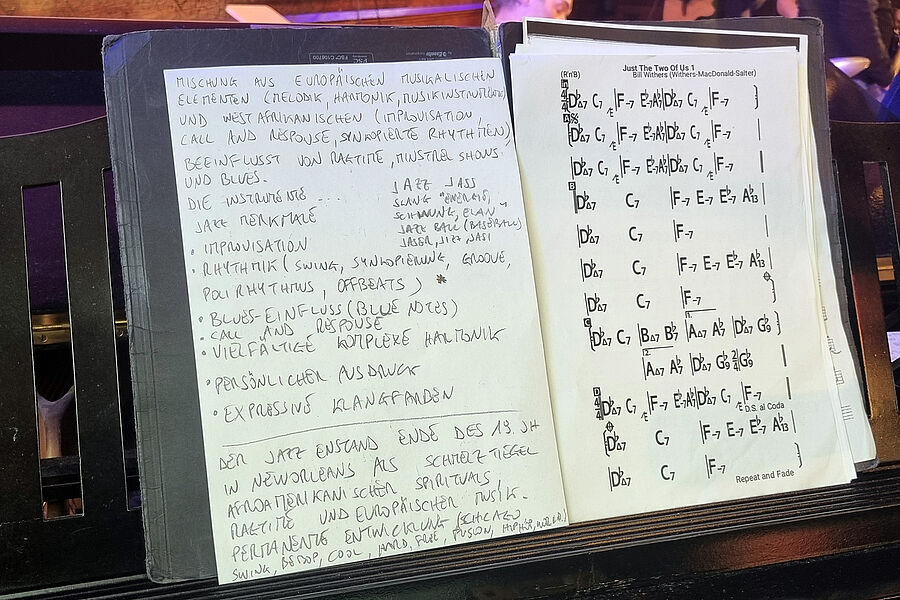 MISCHUNG AUS EUROPÄISCHEN MUSIKALISCHEN
ELEMENTEN (MELODIK, HARMONIK, MUSIKINSTRUMENTE)
UND WESTAFRIKANISCHEN (IMPROVISATION,
CALL AND RESPONSE, SYNKOPIERTE RHYTHMEN)
BEEINFLUSST VON RAGTIME, MINSTREL SHOWS
UND BLUES.
DIE INSTRUMENTE ...
JAZZ MERKMALE
JAZZ JASS
SLANG "ENERGIE,
SCHWUNG, ELAN"
JAZZ BALL (BASEBALL)
JASER, JIZZ, JASI
• IMPROVISATION
• RHYTHMIK (SWING, SYNKOPIERUNG, GROOVE,
POLIRHYTHMUS, OFFBEATS) *
• BLUES-EINFLUSS (BLUE NOTES)
• CALL AND RESPONSE
• VIELFÄLTIGE KOMPLEXE HARMONIK
• PERSÖNLICHER AUSDRUCK
• EXPRESSIVE KLANGFARBEN
DER JAZZ ENSTAND ENDE DES 19. JH
IN NEWORLEANS ALS SCHMELZTIEGEL
AFROAMERIKANISCHER SPIRITUALS,
RAGTIME UND EUROPÄISCHER MUSIK.
PERMANENTE ENTWICKLUNG (CHICAGO
SWING, BEBOP, COOL, HARD, FREE, FUSION, HIPHOP,
Just The Two Of Us 1
(R'n'B) Bill Withers (Withers-MacDonald-Salter)
In 4/4 D♭Δ7 C7 /E F-7 E♭-7 A♭7 D♭Δ7 C7 /E F-7
A D♭Δ7 C7 /E F-7 E♭-7 A♭7 D♭Δ7 C7 /E F-7
D♭Δ7 C7 /E F-7 E♭-7 A♭7 D♭Δ7 C7 /E F-7
B D♭Δ7 C7 F-7 E-7 E♭-7 A♭13
D♭Δ7 C7 F-7
D♭Δ7 C7 F-7 E-7 E♭-7 A♭13
D♭Δ7 C7 F-7
C D♭Δ7 C7 BΔ7 B♭7 1. AΔ7 A♭7 D♭Δ7 G♭9
2. AΔ7 A♭7 D♭Δ7 G♭9 2/4 G♭9
D 4/4 D♭Δ7 C7 /E F-7 E♭-7 A♭7 D♭Δ7 C7 /E F-7
D.S. al Coda
D♭Δ7 C7 F-7 E-7 E♭-7 A♭13
D♭Δ7 C7 F-7
Repeat and Fade